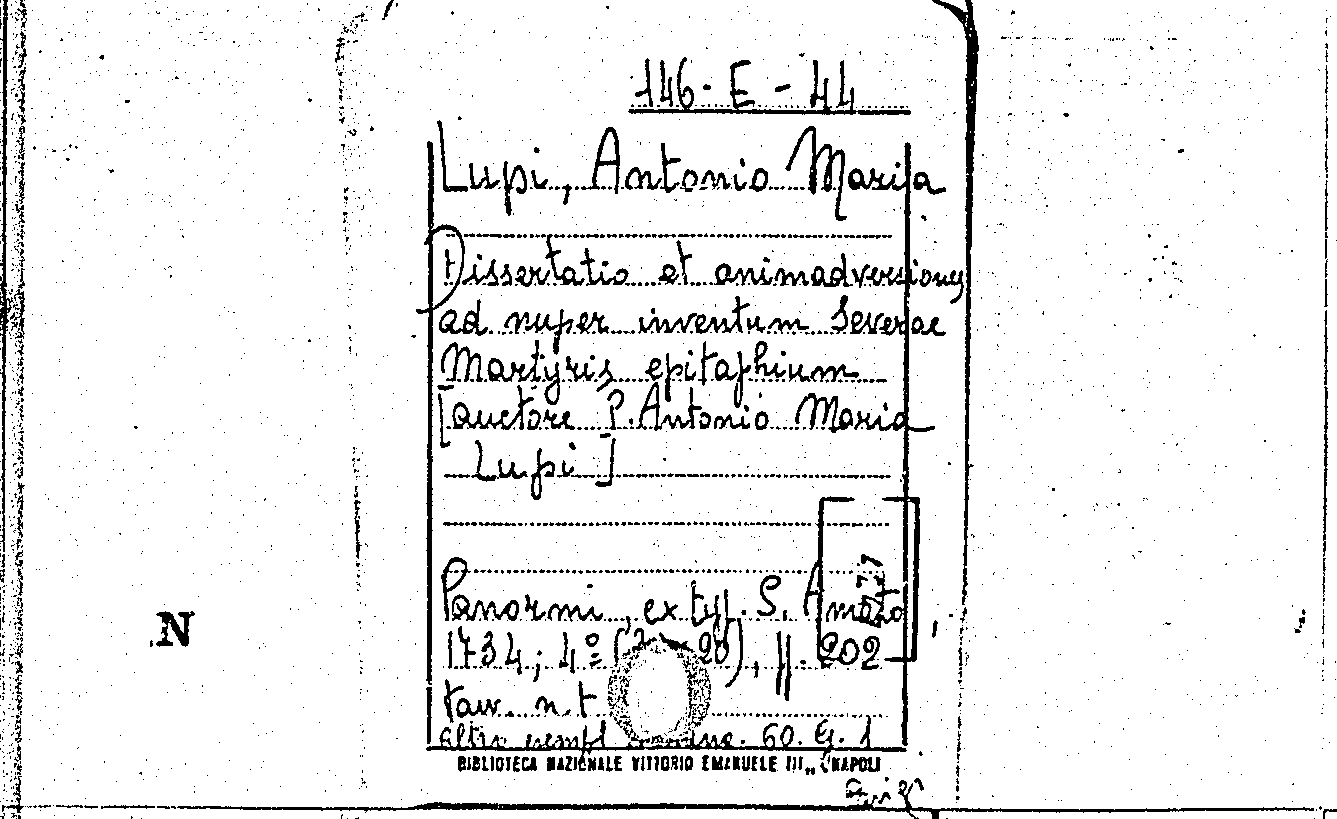 146. E - 44
Lupi, Antonio Maria
Dissertatio et animadversiones
ad nuper inventum Severae
Martyris epitaphium
[auctore P. Antonio Maria
Lupi]
Panormi, ex typ. S. Amato,
1734; 4º 28), pp. 202
tavv. n.t
altro esempl 60. G. 1
BIBLIOTECA NAZIONALE VITTORIO EMANUELE III „ NAPOLI
N